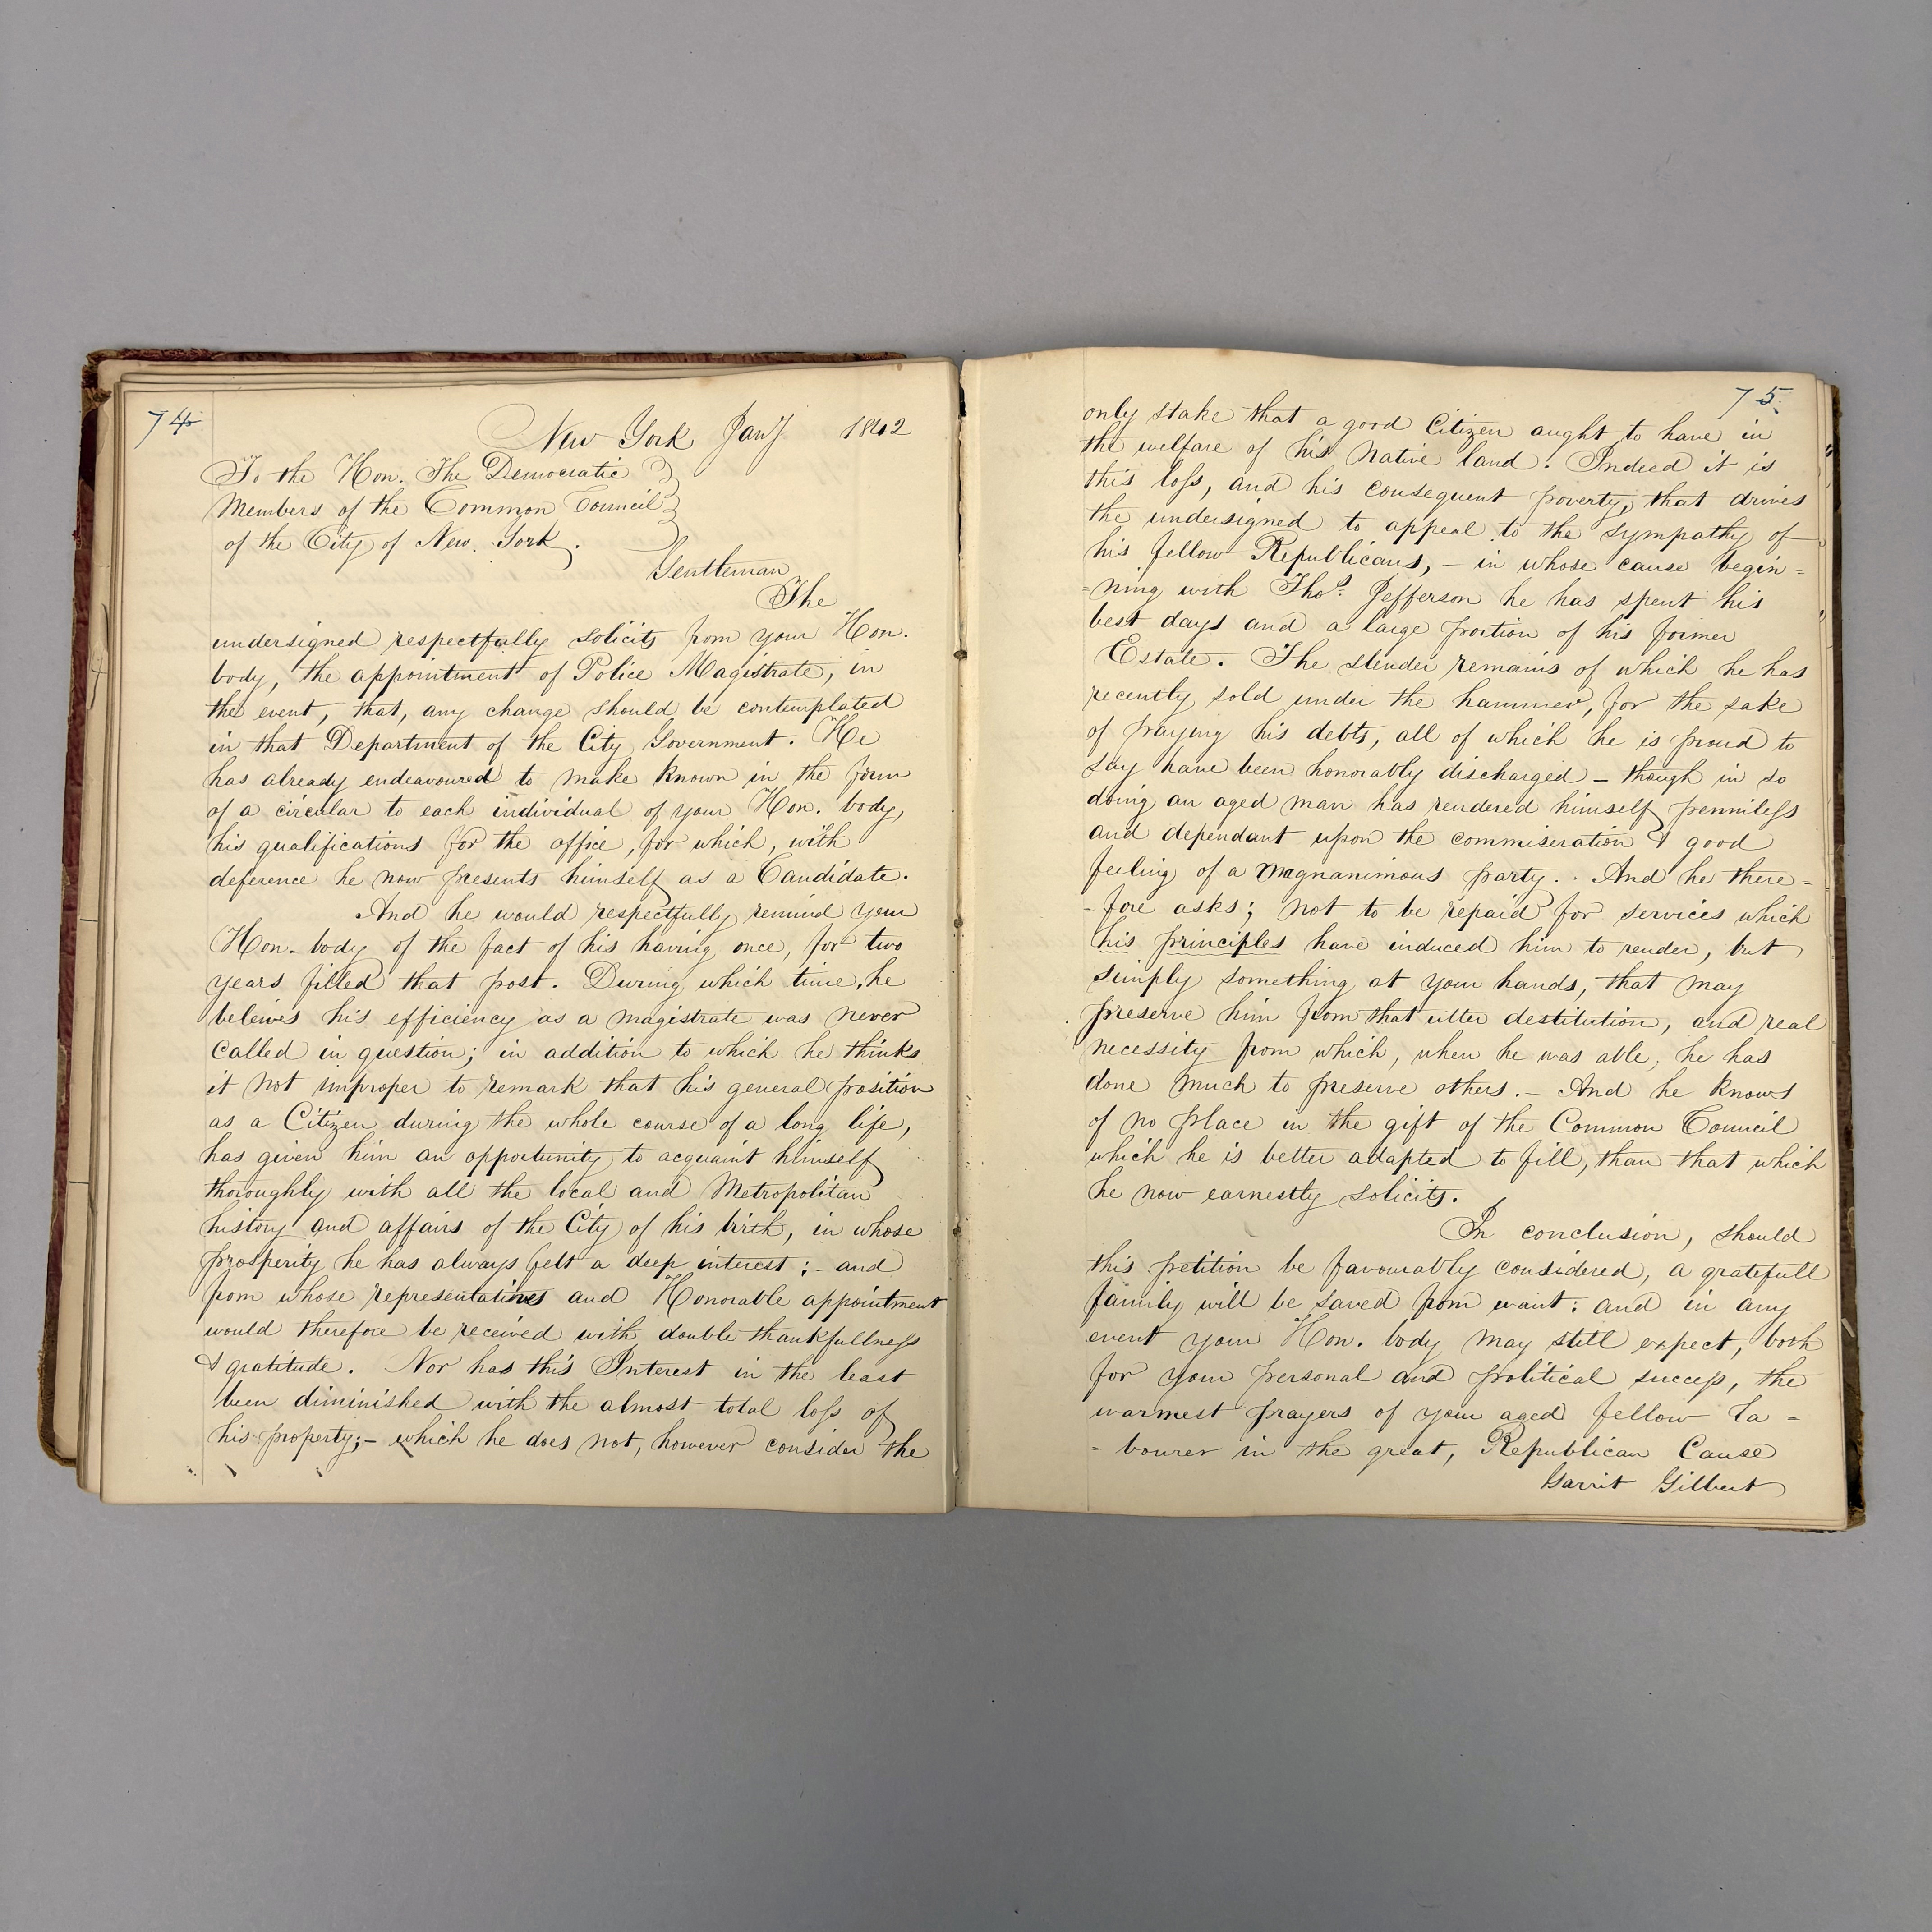 74
New York Jany 1842
To the Hon. The Democratic
Members of the Common Council
of the City of New York.
Gentleman
The
undersigned respectfully solicits from your Hon.
body, the appointment of Police Magistrate, in
the event, that, any change should be contemplated
in that Department of the City Government. He
has already endeavoured to make known in the form
of a circular to each individual of your Hon. body,
his qualifications for the office, for which, with
deference he now presents himself as a Candidate.
And he would respectfully remind your
Hon. body of the fact of his having once, for two
years filled that post. During which time, he
beleives his efficiency as a magistrate was never
called in question; in addition to which he thinks
it not improper to remark that his general position
as a Citizen during the whole course of a long life,
has given him an opportunity to acquaint himself
thoroughly with all the local and Metropolitan
history and affairs of the City of his birth, in whose
prosperity he has always felt a deep interest; - and
from whose representatives and Honorable appointment
would therefore be received with double thankfullness
& gratitude. Nor has this Interest in the least
been diminished with the almost total loss of
his property; - which he does not, however consider the
75.
only stake that a good Citizen aught to have in
the welfare of his Native land. Indeed it is
this loss, and his consequent poverty, that drives
the undersigned to appeal to the sympathy of
his fellow Republicans, - in whose cause begin=
=ning with Thos. Jefferson he has spent his
best days and a large portion of his former
Estate. The slender remains of which he has
recently sold under the hammer, for the sake
of praying his debts, all of which he is proud to
say have been honorably discharged - though in so
doing an aged man has rendered himself penniless
and dependant upon the commiseration & good
feeling of a magnanimous party. . And he there=
-fore asks; not to be repaid for services which
his principles have induced him to render, but
simply something at your hands, that may
preserve him from that utter destitution, and real
necessity from which, when he was able, he has
done much to preserve others. - And he knows
of no place in the gift of the Common Council
which he is better adapted to fill, than that which
he now earnestly solicits.
In conclusion, should
this petition be favourably considered, a gratefull
family will be saved from want: and in any
event your Hon. body may still expect, both
for your personal and political success, the
warmest prayers of your aged fellow la=
-bourer in the great, Republican Cause
Garrit Gilbert